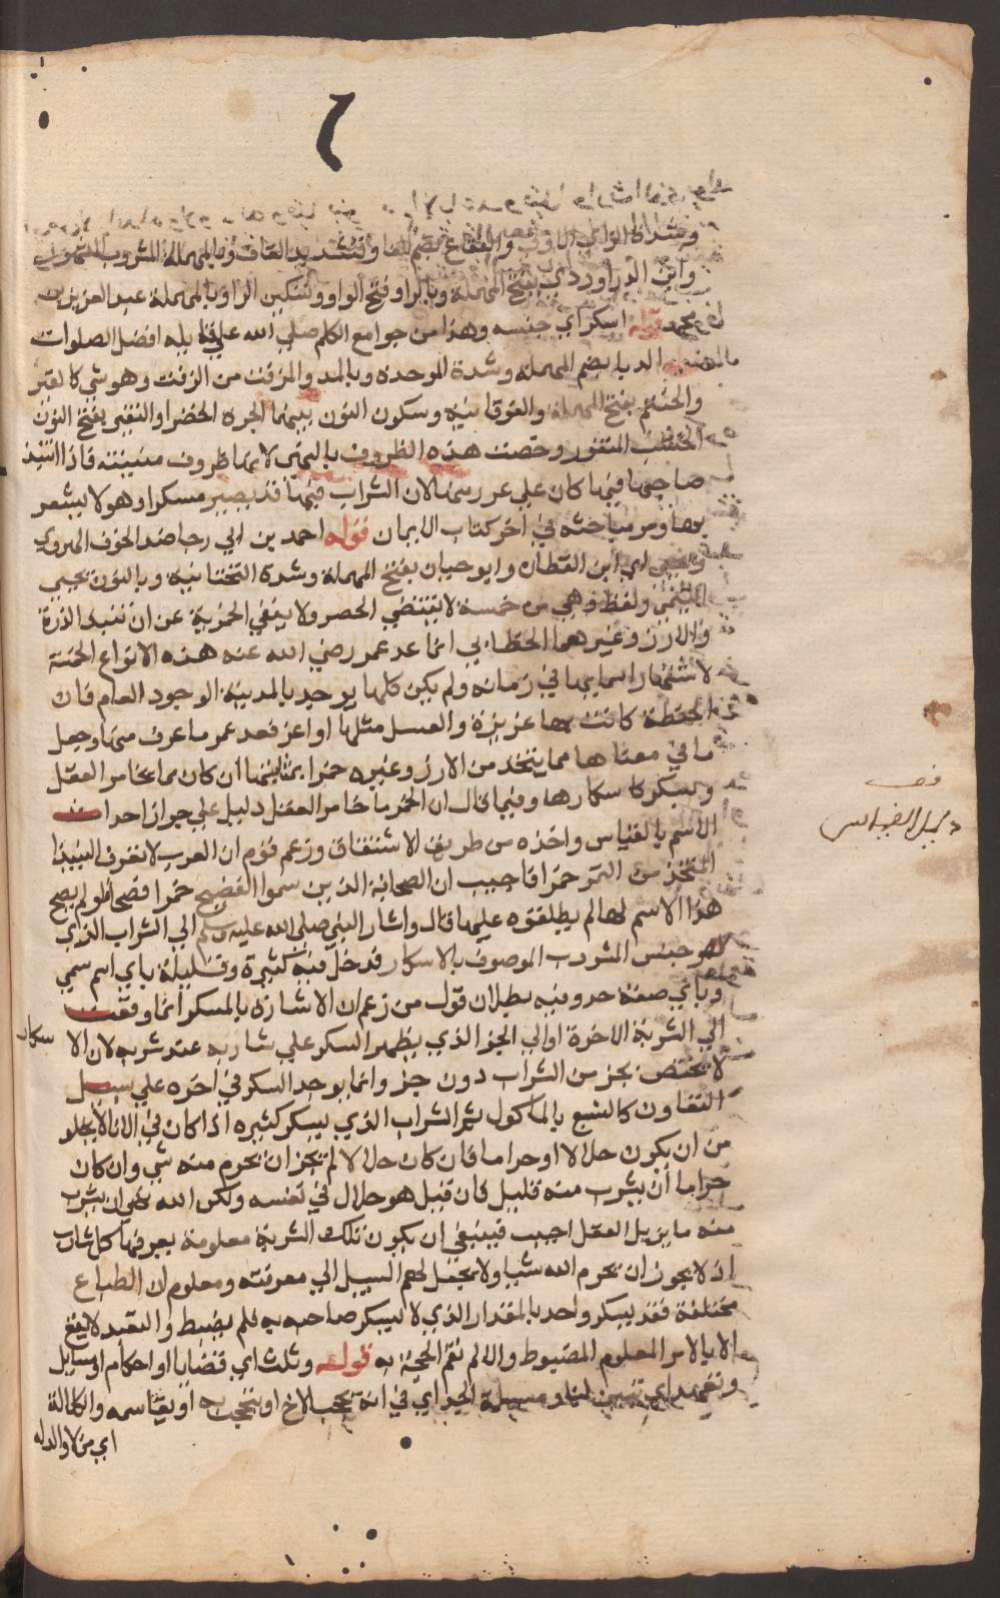 وشدة الواو والفقاع بضم الفا وتشديد القاف وبالمهملة المشروب المشهور
وابن الدراوردي بفتح المهملة وبالرا وفتح الواو وتسكين الرا وبالمهملة عبد العزيز بن
محمد قوله اسكر اي جنسه وهذا من جوامع الكلم صلي الله عليه افضل الصلوات
الدبا بضم المهملة وشدة الموحدة وبالمد والمزفت من الزفت وهو شي كالقير
والحنتم بفتح المهملة والفوقانية وسكون النون بينهما الجرة الخضرا والنقير بفتح النون
الخشب المنقور وخصت هذه الظروف بالنهي لانها ظروف منبتة فاذا انتبذ
صاحبها فيها كان علي غرر منها لان الشراب فيها قد يصير مسكرا وهو لا يشعر
بها ومر مباحثه في اخر كتاب الايمان قوله احمد بن ابي رجا ضد الخوف الهروي
ويحيي اي ابن القطان وابو حيان بفتح المهملة وشدة التحتانية وبالنون يحيي
التيمي ولفظ وهي من خمسة لا يقتضي الحصر ولا ينفي الخمرية عن ان نبيذ الذرة
والارز وغيرهما الخطابي انما عد عمر رضي الله عنه هذه الانواع الخمسة
لاشتهار اسمايها في زمانه ولم يكن كلها يوجد بالمدينة الوجود العام فان
الحنطة كانت بها عزيزة والعسل مثلها او اعز فعد عمر ما عرف منها وجعل
ما في معناها مما يتخذ من الارز وغيره خمرا بمثابتها ان كان مما يخامر العقل
ويسكر كاسكارها وفيما قال ان الخمر ما خامر العقل دليل علي جواز احداث
الاسم بالقياس واخذه من طريق الاشتقاق وزعم قوم ان العرب لا تعرف النبيذ
المتخذ من التمر خمرا فاجيب ان الصحابة الذين سموا الفضيخ خمرا فصحا فلو لم يصح
هذا الاسم لها لم يطلقوه عليها قال واشار النبي صلي الله عليه وسلم الي الشراب الذي
هو جنس المشروب الموصوف بالاسكار فدخل فيه كثيرة وقليله باي اسم سمي
وباي صفة حد وفيه بطلان قول من زعم ان الاشارة بالمسكر انما وقعت
الي الشربة الاخرة او الي الجز الذي يظهر السكر علي شاربه عند شربه لان الا سكار
لا يختص بجز من الشراب دون جز وانما يوجد السكر في اخره علي سبيل
التعاون كالشبع بالماكول ثم الشراب الذي يسكر كثيره اذا كان في الانا لا يخلو
من ان يكون حلالا او حراما فان كان حلالا لم يجز ان يحرم منه شي وان كان
حراما ان يشرب منه قليل فان قيل هو حلال في نفسه ولكن الله نهي ان يشرب
منه ما يزيل العقل اجيب فينبغي ان يكون تلك الشربة معلومة يعرفها كل شارب
اذ لا يجوز ان يحرم الله شيا ولا يجعل لهم السبيل الي معرفته ومعلوم ان الطباع
مختلفة فقد يسكر واحد بالمقدار الذي لا يسكر صاحبه به فلم يضبط والتعبد لا يقع
الا بالامر المعلوم المضبوط والا لم تقم الحجة به قوله وثلث اي قضايا او احكام او مسايل
ونعهد اي نبين لنا ومسيلة الجد اي في انه يحجب الاخ او ينحجب به او يقاسمه والكلالة
اي من لا والد له
قف
دليل القياس